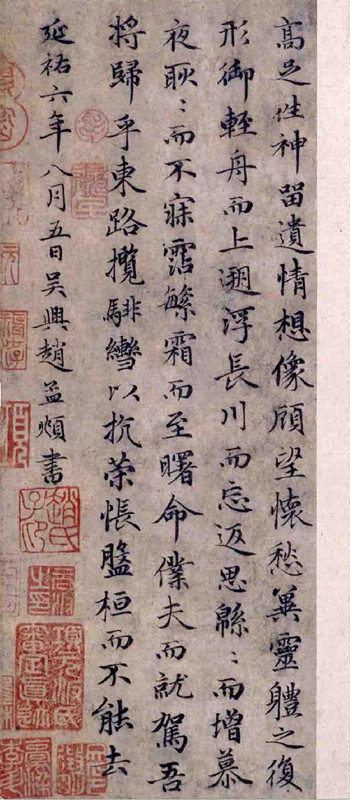 高足往神留遺情想像顧望懷愁冀靈體之復
形御輕舟而上遡浮長川而忘返思緜〻而增慕
夜耿〻而不寐霑繁霜而至曙命僕夫而就駕吾
將歸乎東路攬騑轡以抗策悵盤桓而不能去
延祐六年八月五日吳興趙孟頫書
趙氏子昂